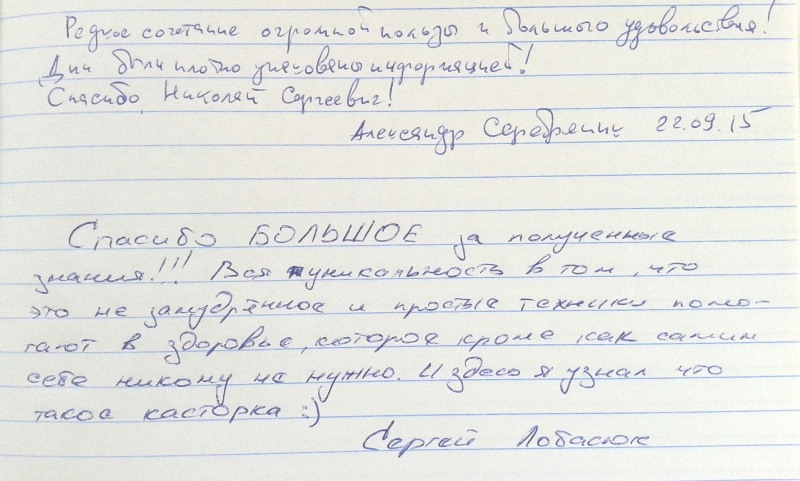 Редкое сочетание огромной пользы и большого удовольствия!
Дни были плотно упакованы информацией!
Спасибо, Николай Сергеевич!
Александр Серебряник 22.09.15
Спасибо БОЛЬШОЕ за полученные
знания!!! Вся уникальность в том, что
это не замудрённое и простые техники помо-
гают в здоровье, которое кроме как самим
себе никому не нужно. И здесь я узнал что
такое касторка :)
Сергей Лобасюк